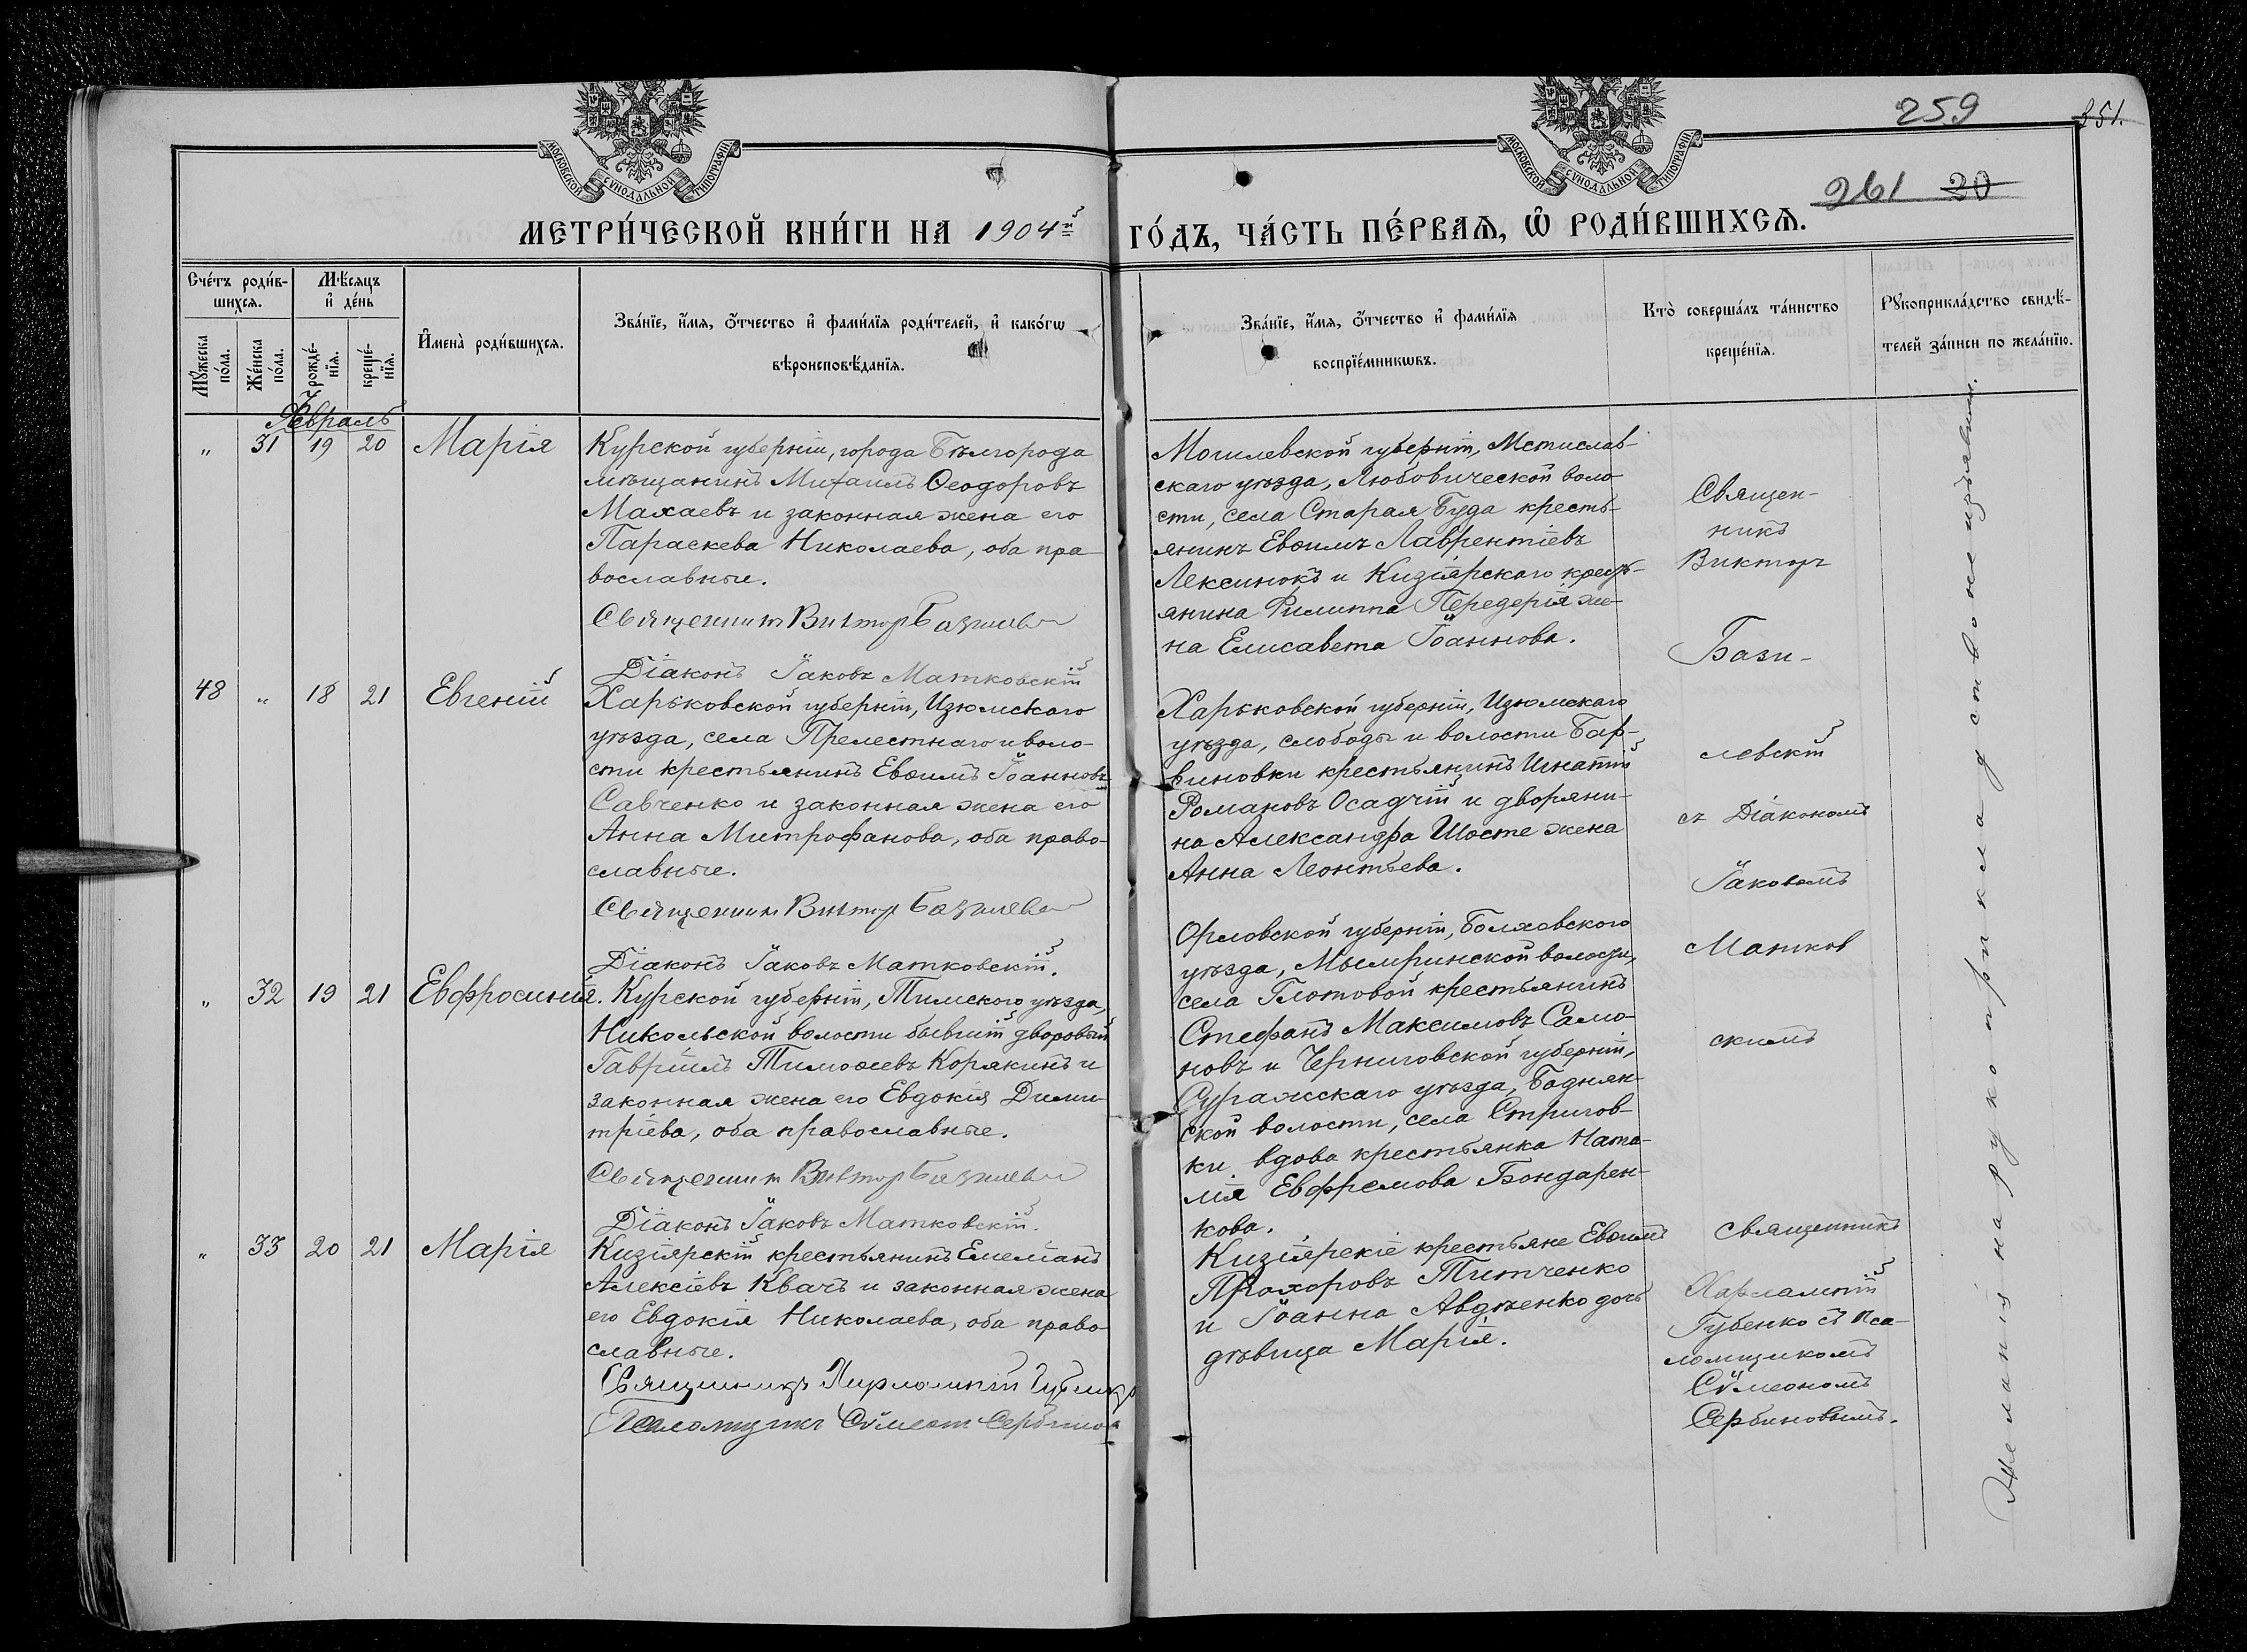 259
251.
261 20
МОСКОВСКОЙ СѴНОДАЛЬНОЙ ТИПОГРАФІИ
МОСКОВСКОЙ СѴНОДАЛЬНОЙ ТИПОГРАФІИ
МЕТРИ́ЧЕСКОЙ КНИ́ГИ НА 1904й ГО́ДЪ, ЧА́СТЬ ПЕ́РВАЯ, Ѽ РОДИ́ВШИХСЯ.
Сче́тъ роди́в-
шихся.
Мѣ́сяцъ
и де́нь
Мꙋ́жеска по́ла.
Же́нска по́ла.
рожде́-
нїя.
креще́-
нїя.
Имена̀ роди́вшихся.
Зва́нїе, и́мя, о́тчество и фами́лїя роди́телей, и како́гѡ
вѣроисповѣ́данїя.
Зва́нїе, и́мя, о́тчество и фами́лїя
воспрїе́мникѡвъ.
Кто̀ соверша́лъ та́инство
креще́нїя.
Рꙋкоприкла́дство свидѣ́-
телей за́писи по жела́нїю.
Февраль
„ 31 19 20 Марія
Курской губерніи, города Бѣлгорода
мѣщанинъ Михаилъ Ѳеодоровъ
Махаевъ и законная жена его
Параскева Николаева, оба пра-
вославные.
Священник Виктор Базилев
Діаконъ Іаковъ Матковскій
Могилевской губерніи, Мстислав-
скаго уѣзда, Любовической воло-
сти, села Старая Буда кресть-
янинъ Евѳимъ Лаврентіевъ
Лексинокъ и Кизіярскаго кресть-
янина Филиппа Передерія же-
на Елисавета Іоаннова.
Священ-
никъ
Викторъ
Бази-
левскій
съ Діакономъ
Іаковомъ
Матков
скимъ
48 „ 18 21 Евгеній
Харьковской губерніи, Изюмскаго
уѣзда, села Прелестнаго и воло-
сти крестьянинъ Евѳимъ Іоанновъ
Савченко и законная жена его
Анна Митрофанова, оба право-
славные.
Священник Виктор Базилев
Діаконъ Іаковъ Матковскій.
Харьковской губерніи, Изюмскаго
уѣзда, слободы и волости Бар-
виновки крестьянинъ Игнатій
Романовъ Осадчій и дворяни-
на Александра Шосте жена
Анна Леонтьева.
„ 32 19 21 Евфросинія.
Курской губерніи, Тимскаго уѣзда,
Никольской волости бывшій дворовый
Гавріилъ Тимоѳеевъ Корякинъ и
законная жена его Евдокія Дими-
тріева, оба православные.
Священник Виктор Базилев
Діаконъ Іаковъ Матковскій.
Орловской губерніи, Болховского
уѣзда, Мымринской волости,
села Глотовой крестьянинъ
Стефанъ Максимовъ Само-
новъ и Черниговской губерніи,
Суражскаго уѣзда, Боднян-
ской волости, села Стригов-
ки вдова крестьянка Ната-
лія Евфремова Бондарен-
кова.
„ 33 20 21 Марія
Кизіярскій крестьянинъ Емеліанъ
Алексіевъ Квачъ и законная жена
его Евдокія Николаева, оба право-
славные.
Священникъ Харлампій Губенко
Псаломщикъ Сѵмеон Сербинов
Кизіярскіе крестьяне Евѳимъ
Прохоровъ Титченко
и Іоанна Авдѣенко дочь
дѣвица Марія.
Священникъ
Харлампій
Губенко съ Пса-
ломщикомъ
Сѵмеономъ
Сербиновымъ.
Желанія на рукоприкладство не изъявили.